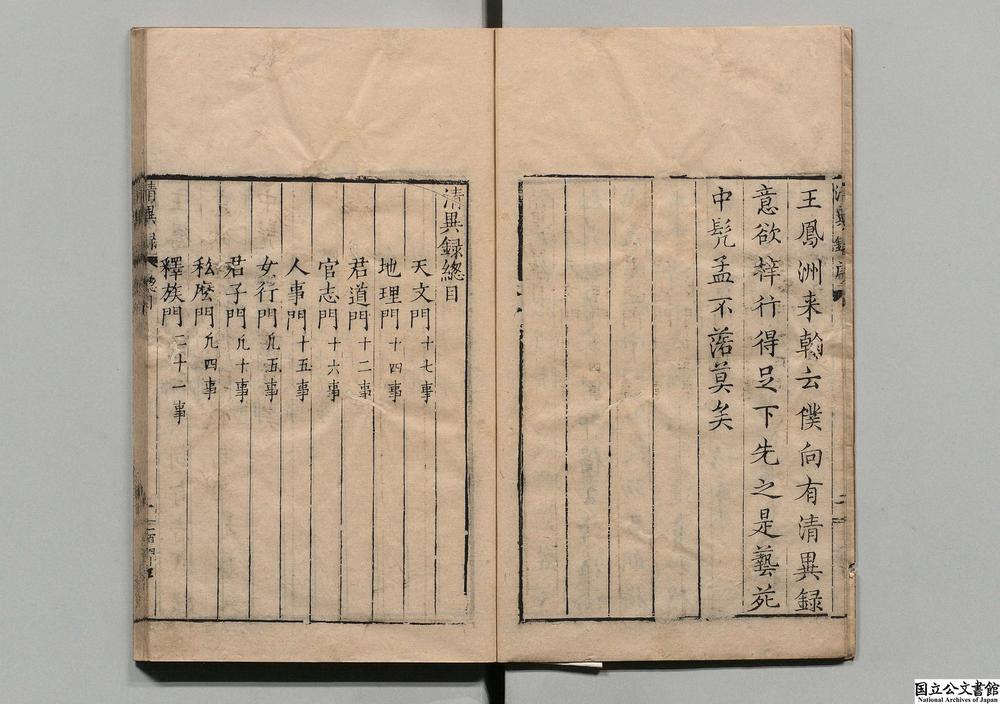 王鳳洲来翰云僕向有清異録
意欲梓行得足下先之是藝苑
中髠孟不落莫矣
清異録總目
天文門十七事
地理門十四事
君道門十二事
官志門十六事
人事門十五事
女行門凢五事
君子門凢十事
私麽門凢四事
釋族門二十一事
清異録
總目
国立公文書館
National Archives of Japan